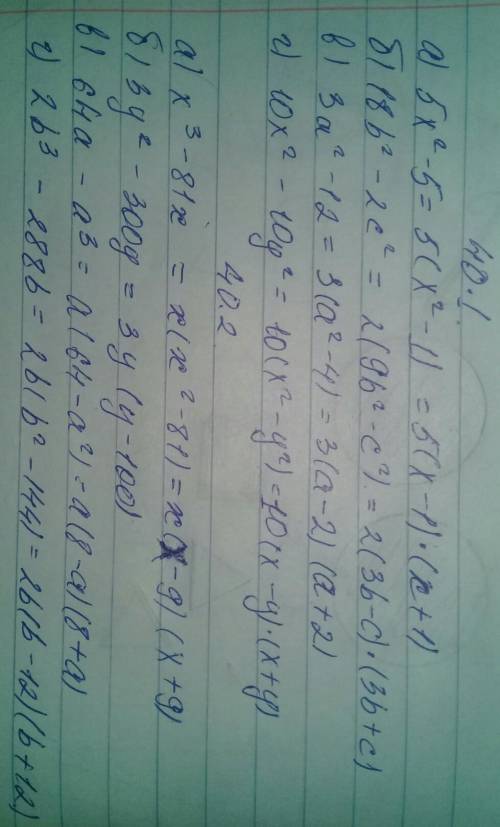 40.1.
а) 5x² - 5 = 5(x² - 1) = 5(x - 1)·(x + 1)
б) 18b² - 2c² = 2(9b² - c²) = 2(3b - c)·(3b + c)
в) 3a² - 12 = 3(a² - 4) = 3(a - 2)(a + 2)
г) 10x² - 10y² = 10(x² - y²) = 10(x - y)·(x + y)
40.2
а) x³ - 81x = x(x² - 81) = x(x - 9)(x + 9)
б) 3y² - 300y = 3y(y - 100)
в) 64a - a³ = a(64 - a²) = a(8 - a)(8 + a)
г) 2b³ - 288b = 2b(b² - 144) = 2b(b - 12)(b + 12)